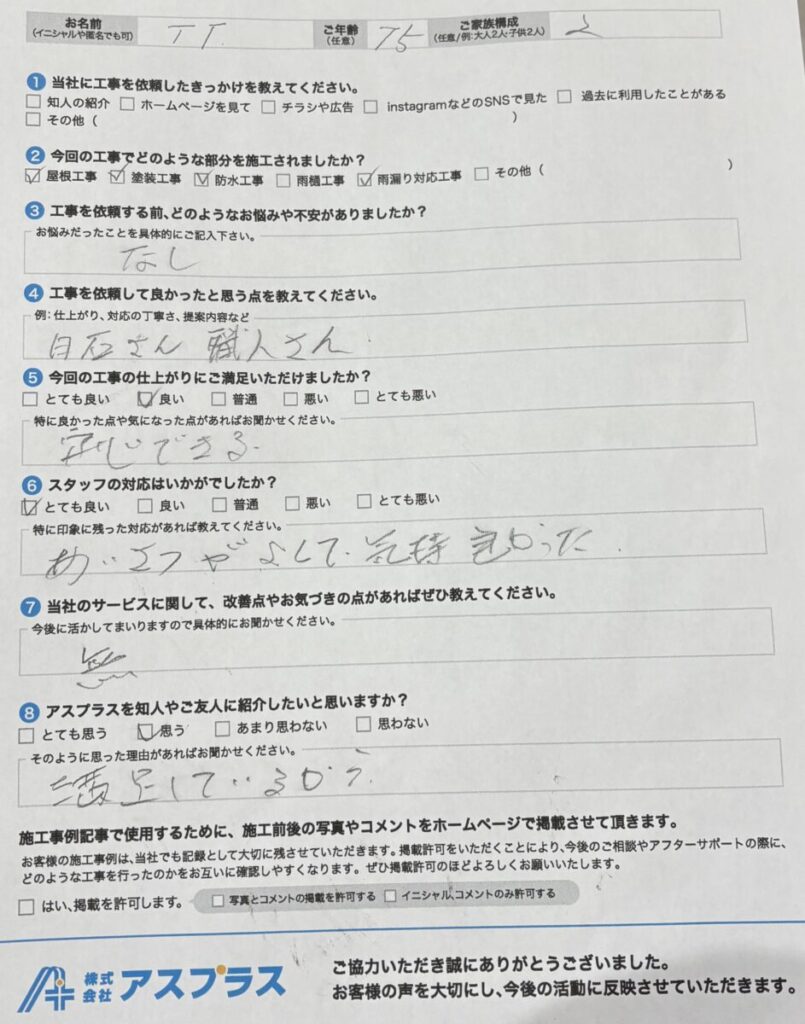 お名前
(イニシャルや匿名でも可)
T T.
ご年齢
(任意)
75
ご家族構成
(任意/例:大人2人・子供2人)
2
1 当社に工事を依頼したきっかけを教えてください。
□ 知人の紹介 □ ホームページを見て □ チラシや広告 □ instagramなどのSNSで見た □ 過去に利用したことがある
□ その他 ( )
2 今回の工事でどのような部分を施工されましたか?
☑ 屋根工事 ☑ 塗装工事 ☑ 防水工事 □ 雨樋工事 ☑ 雨漏り対応工事 □ その他 ( )
3 工事を依頼する前、どのようなお悩みや不安がありましたか?
お悩みだったことを具体的にご記入下さい。
なし
4 工事を依頼して良かったと思う点を教えてください。
例:仕上がり、対応の丁寧さ、提案内容など
白石さん 職人さん
5 今回の工事の仕上がりにご満足いただけましたか?
□ とても良い ☑ 良い □ 普通 □ 悪い □ とても悪い
特に良かった点や気になった点があればお聞かせください。
安心できる.
6 スタッフの対応はいかがでしたか?
☑ とても良い □ 良い □ 普通 □ 悪い □ とても悪い
特に印象に残った対応があれば教えてください。
あいさつがよくて. 気持 良かった.
7 当社のサービスに関して、改善点やお気づきの点があればぜひ教えてください。
今後に活かしてまいりますので具体的にお聞かせください。
無
8 アスプラスを知人やご友人に紹介したいと思いますか?
□ とても思う ☑ 思う □ あまり思わない □ 思わない
そのように思った理由があればお聞かせください。
満足しているから.
施工事例記事で使用するために、施工前後の写真やコメントをホームページで掲載させて頂きます。
お客様の施工事例は、当社でも記録として大切に残させていただきます。掲載許可をいただくことにより、今後のご相談やアフターサポートの際に、
どのような工事を行ったのかをお互いに確認しやすくなります。ぜひ掲載許可のほどよろしくお願いいたします。
□ はい、掲載を許可します。 □ 写真とコメントの掲載を許可する □ イニシャル、コメントのみ許可する
株式会社 アスプラス
ご協力いただき誠にありがとうございました。
お客様の声を大切にし、今後の活動に反映させていただきます。